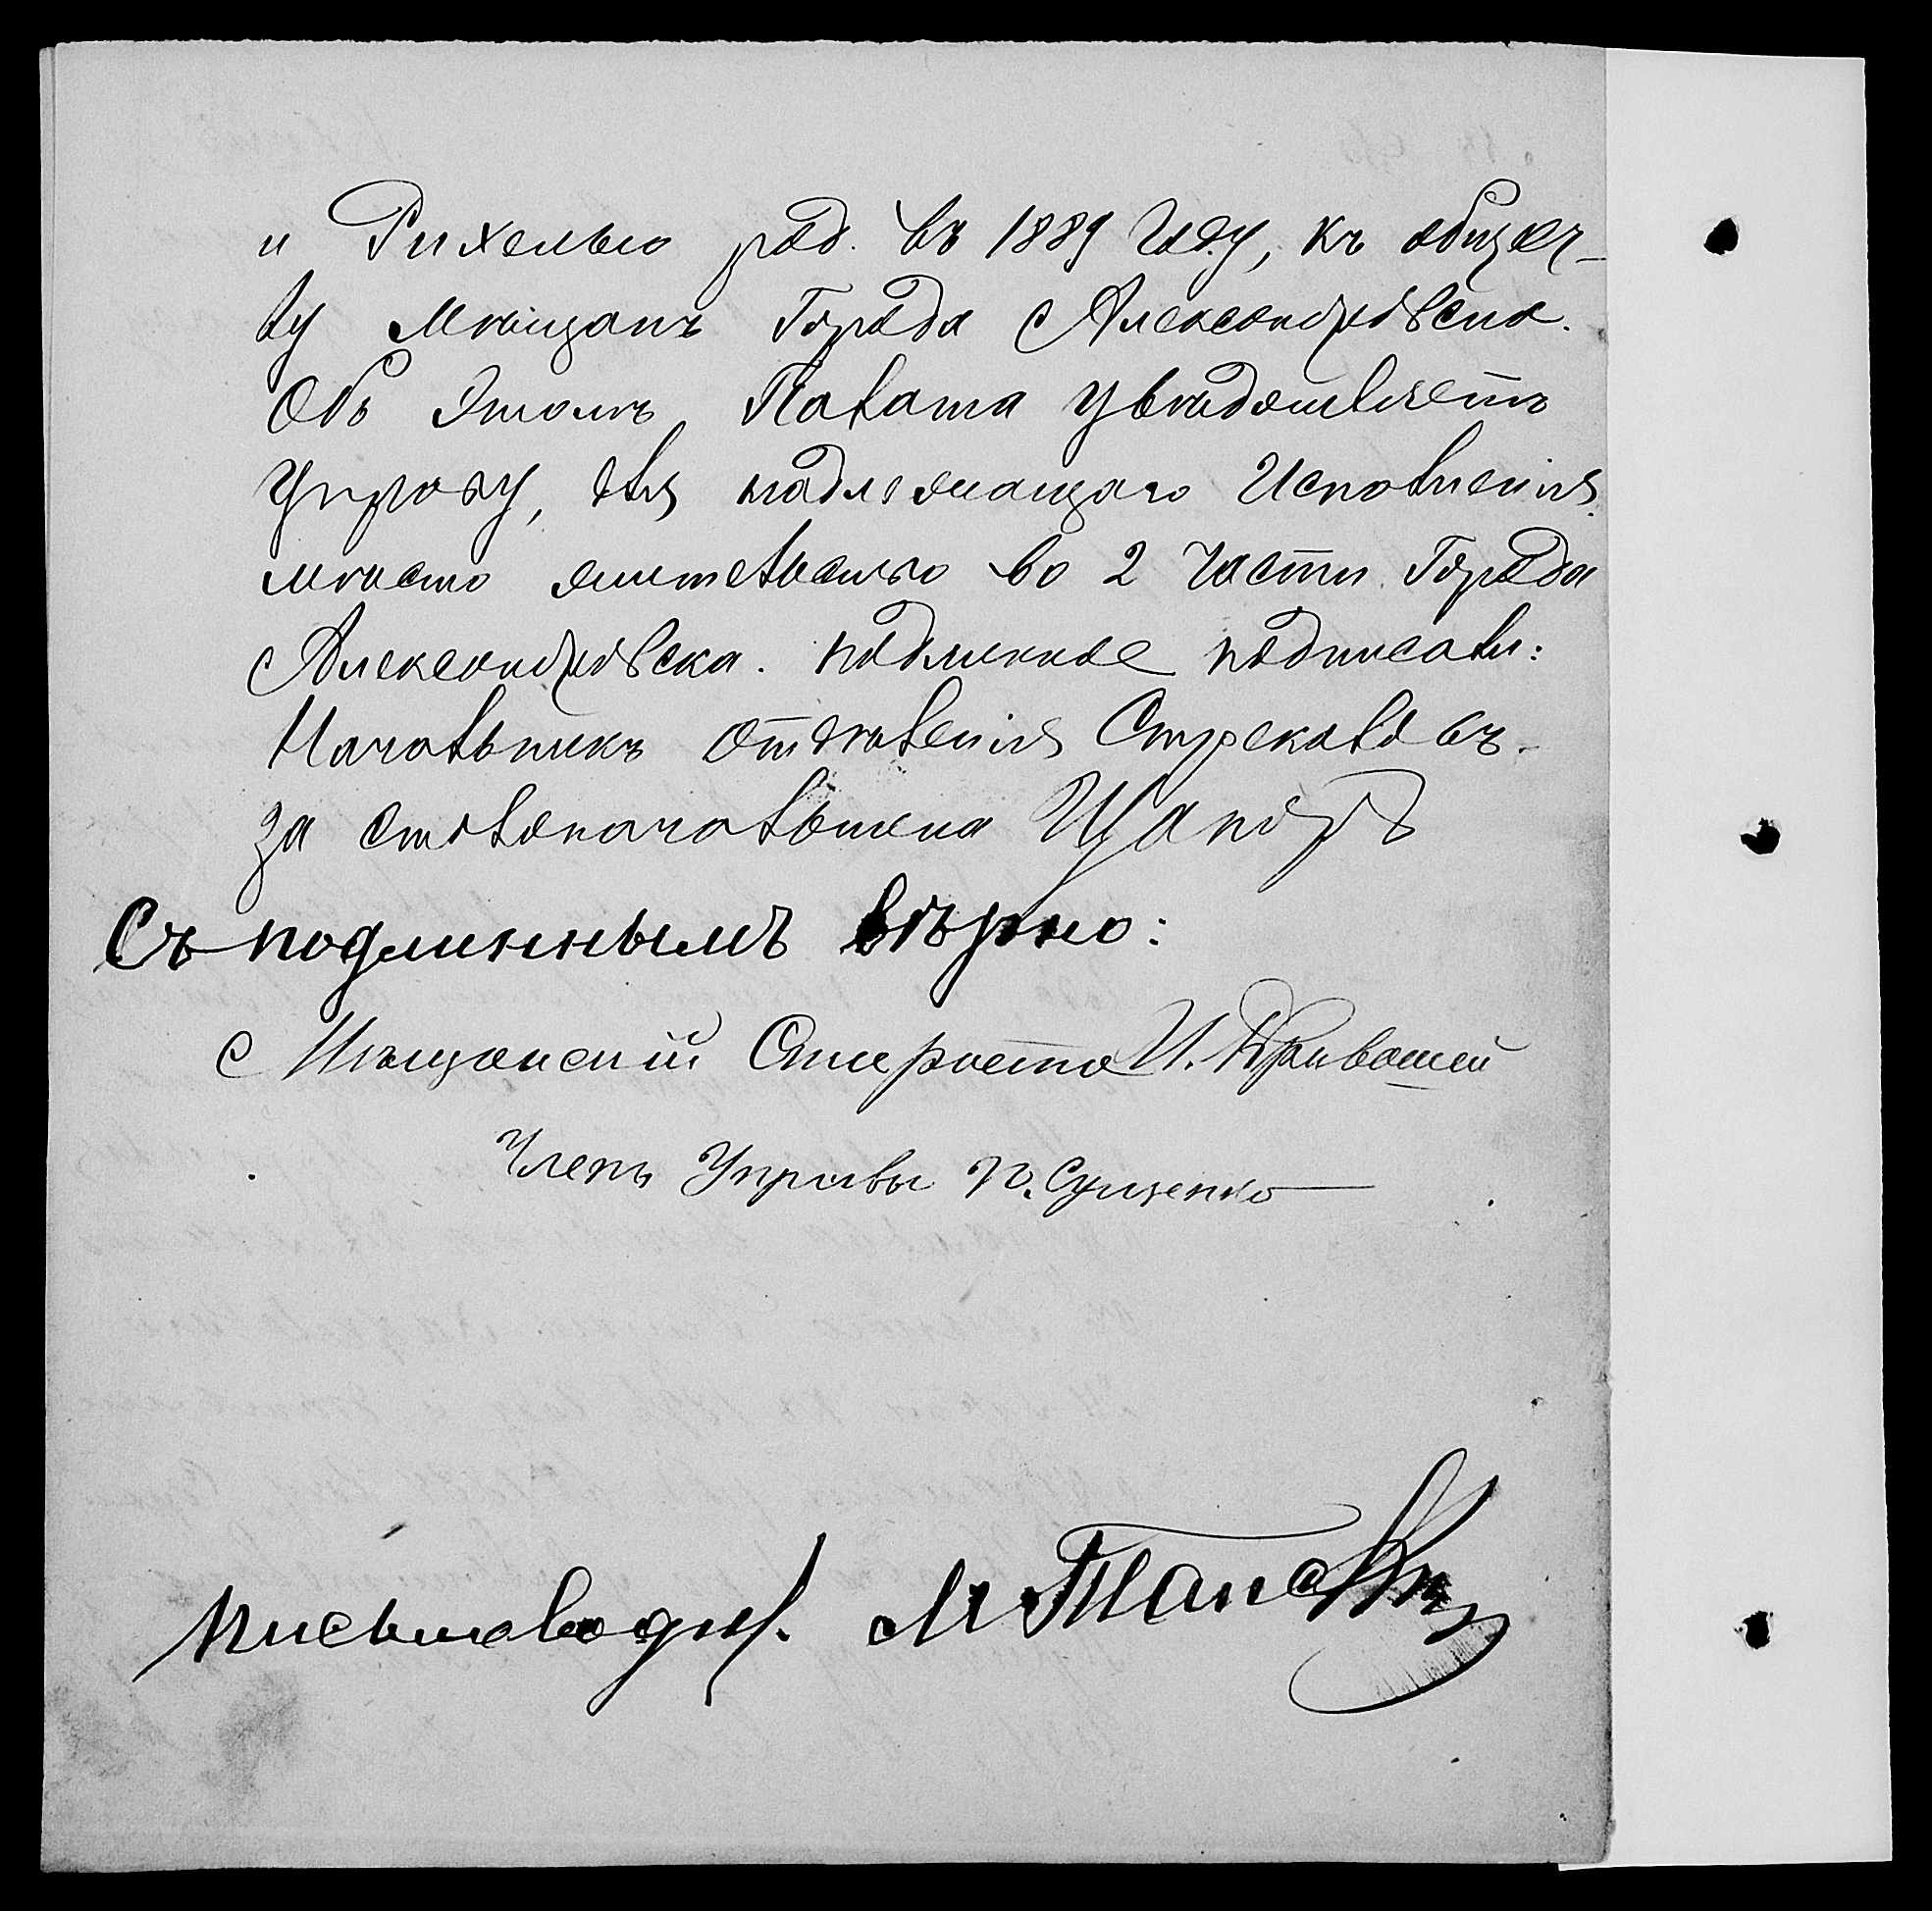 и Рихелью род. въ 1889 году, къ общест-
ву Мѣщанъ Города Александровска.
Объ этомъ Палата увѣдомляетъ
Управу, для надлежащаго Исполненія.
мѣсто жительство во 2 части Города
Александровска. подлинное подписали:
Начальникъ отдѣленія Стрекаловъ.
за столоначальника
Съ подлиннымъ вѣрно:
Мѣщанскій Староста И. Кривошей
Членъ Управы П. Сущенко
Письмоводит. М.